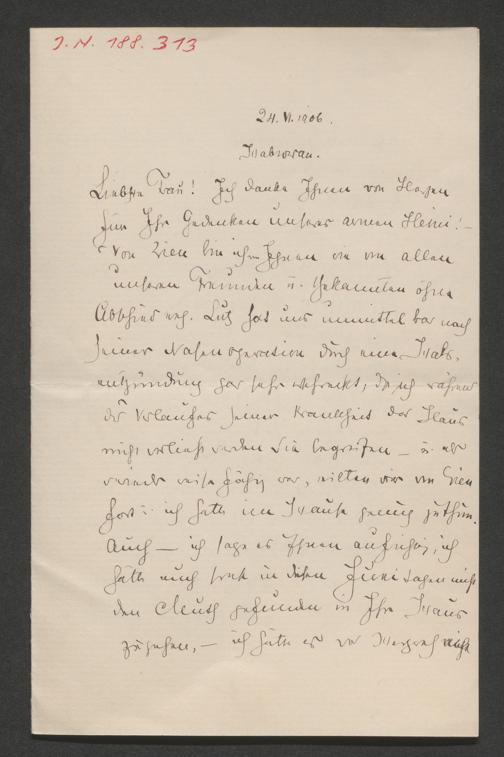 J.N. 188.313
24. VI. 1906.
Liebste Frau! Ich danke Ihnen von Herzen
für Ihr Gedenken unseres armen Heini! –
Von Wien bin ich von Ihnen wie von allen
unseren Freunden u. Bekannten ohne
Abschied weg. Lutz hat uns unmittelbar nach
seiner Nasenoperation durch eine Hals-
entzündung gar sehr erschreckt, daß ich während
des Verlaufes seiner Krankheit das Haus
nicht verließ werden Sie begreifen – u. als er
wieder reisefähig war, eilten wir von Wien
fort: ich hatte im Hause genug zu thun.
Auch – ich sage es Ihnen aufrichtig, ich
hätte auch sonst in diesen Juni Tagen nicht
den Muth gefunden in Ihr Haus
zu gehen, – ich hätte es vor nicht